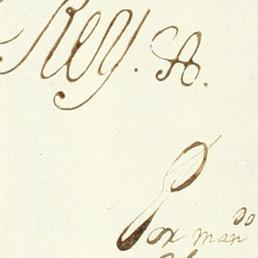 Rey. A.
Por man^do